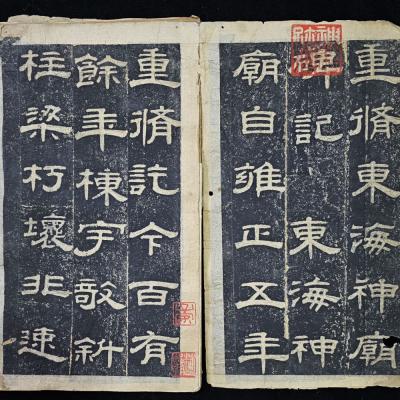 重脩東海神廟
碑記 東海神
廟自雍正五年
重脩訖今百有
餘年棟宇敧斜
柱梁朽壞非速